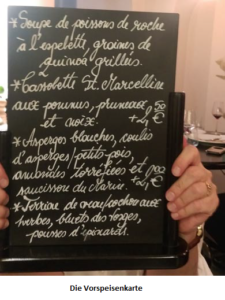 *Soupe de poissons de roche
à l'espelette, graines de
quinoa grillés.
*Cassolette St. Marcellin
aux pommes, pruneaux
et noix. +2,50 €
*Asperges blanches, coulis
d'asperges, petits pois,
amandes torréfiées et
saucisson du
*Terrine de aux
herbes, bluets des Vosges,
pousses d'épinards.
Die Vorspeisenkarte